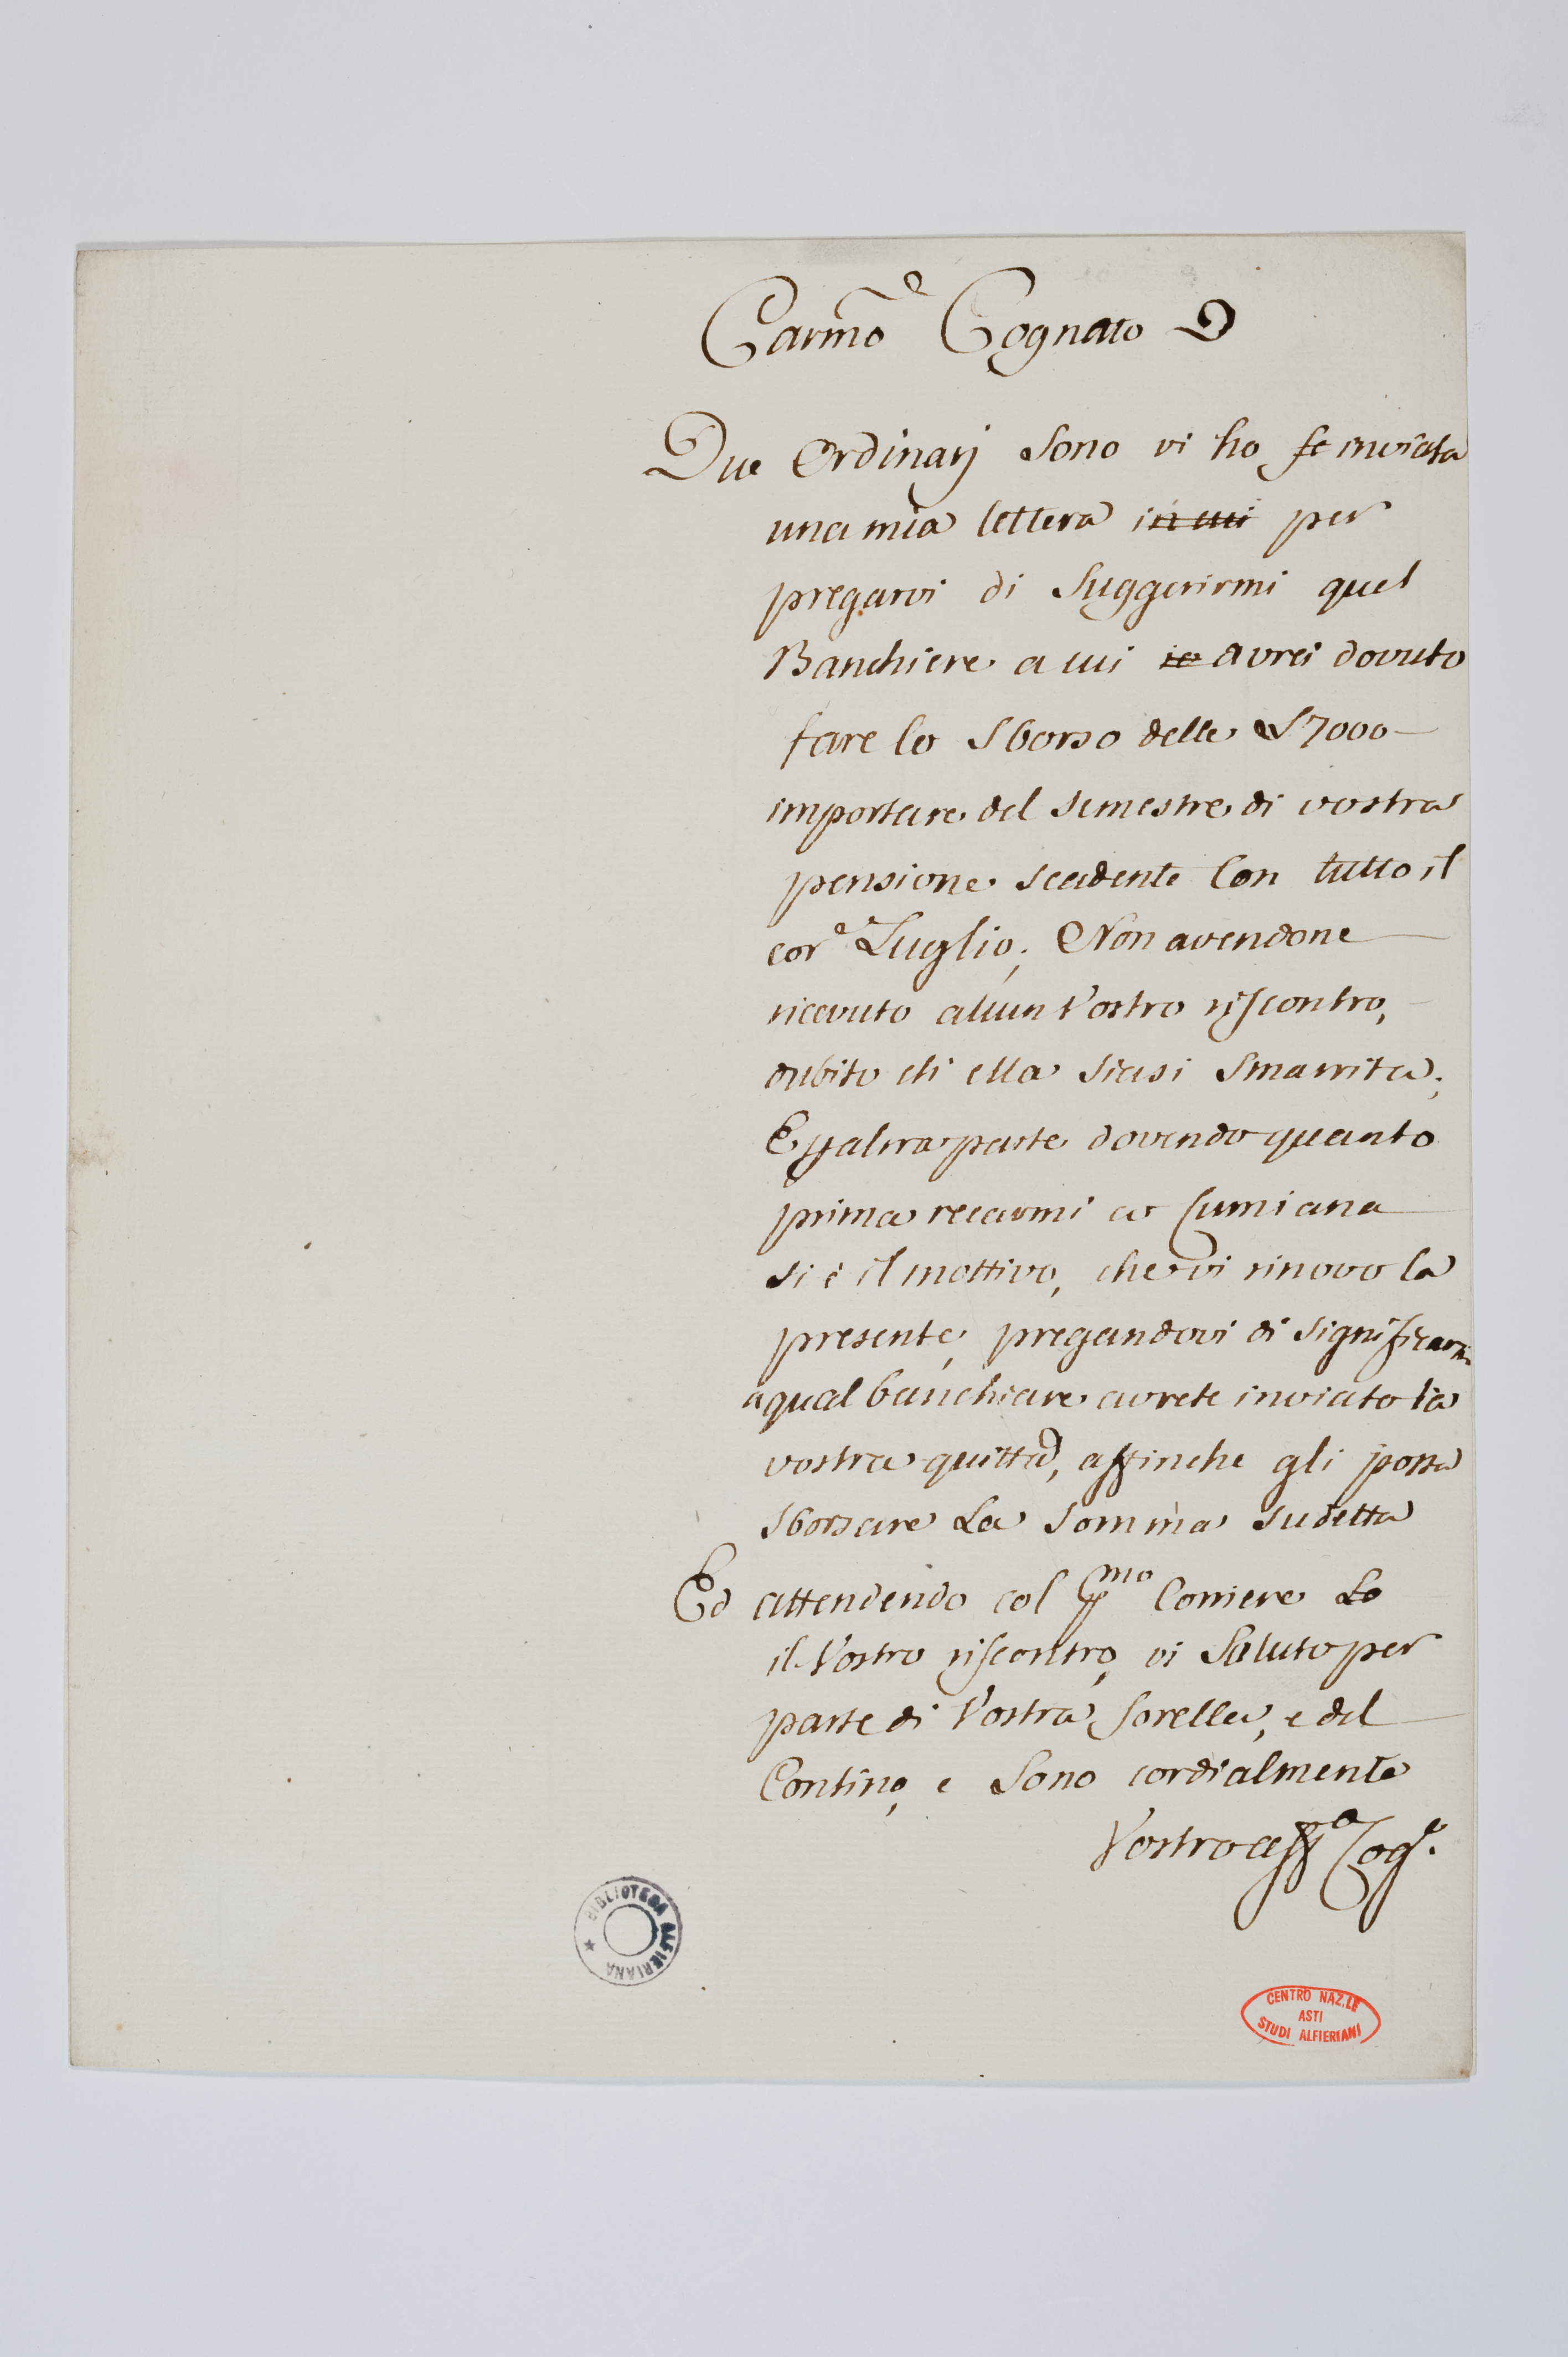 Carmo Cognato
Due Ordinarj Sono vi ho inviata
una mia lettera in cui per
pregarvi di Suggerirmi quel
Banchiere a cui io avrei dovuto
fare lo Sborso delle £7000
importare del semestre di vostra
pensione scadente Con tutto il
core Luglio; Non avendone
ricevuto alcun Vostro riscontro,
dubito ch' ella siasi Smarrita;
E p altra parte dovendo quanto
prima recarmi a Cumiana
si è il mottivo, che vi rinovo la
presente, pregandovi di significarmi
a qual banchiere avrete inviato la
vostra quitta, affinche gli possa
sborsare La somma sudetta
Ed attendendo col pmo Corriere Lo
il Vostro riscontro, vi Saluto per
parte di Vostra Sorella, e del
Contino, e Sono cordialmente
Vostro affo Coge.
BIBLIOTECA ALFIERIANA
CENTRO NAZ.LE
ASTI
STUDI ALFIERIANI